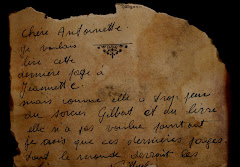 Chère Antoinette.
Je voulais
lire cette
dernière page à
Jeannette.
mais comme elle a trop peur
du sorcier Gilbert et du livre
elle n'a pas voulue pourtant
je crois que ces dernières pages
dont le monde